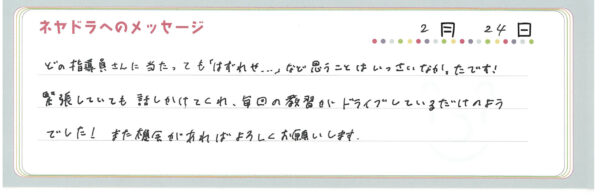 ネヤドラへのメッセージ
2月 24日
どの指導員さんに当たっても「はずれせ...」など思うことはいっさいなかったです!
緊張していても話しかけてくれ、毎回の教習がドライブしているだけのよう
でした! また機会があればよろしくお願いします.